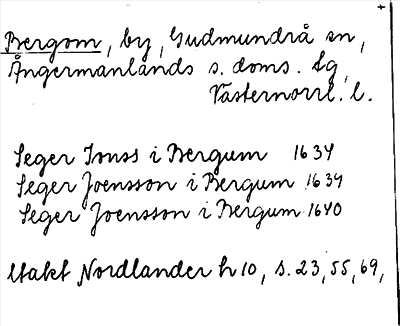 Bergom, by, Gudmundrå sn,
Ångermanlands s. doms. sg,
Västernorrl. l.
Seger Jonss i Bergum 1634
Seger Joensson i Bergum 1639
Seger Joensson i Bergum 1640
Utakt Nordlander h 10, s. 23, 55, 69,